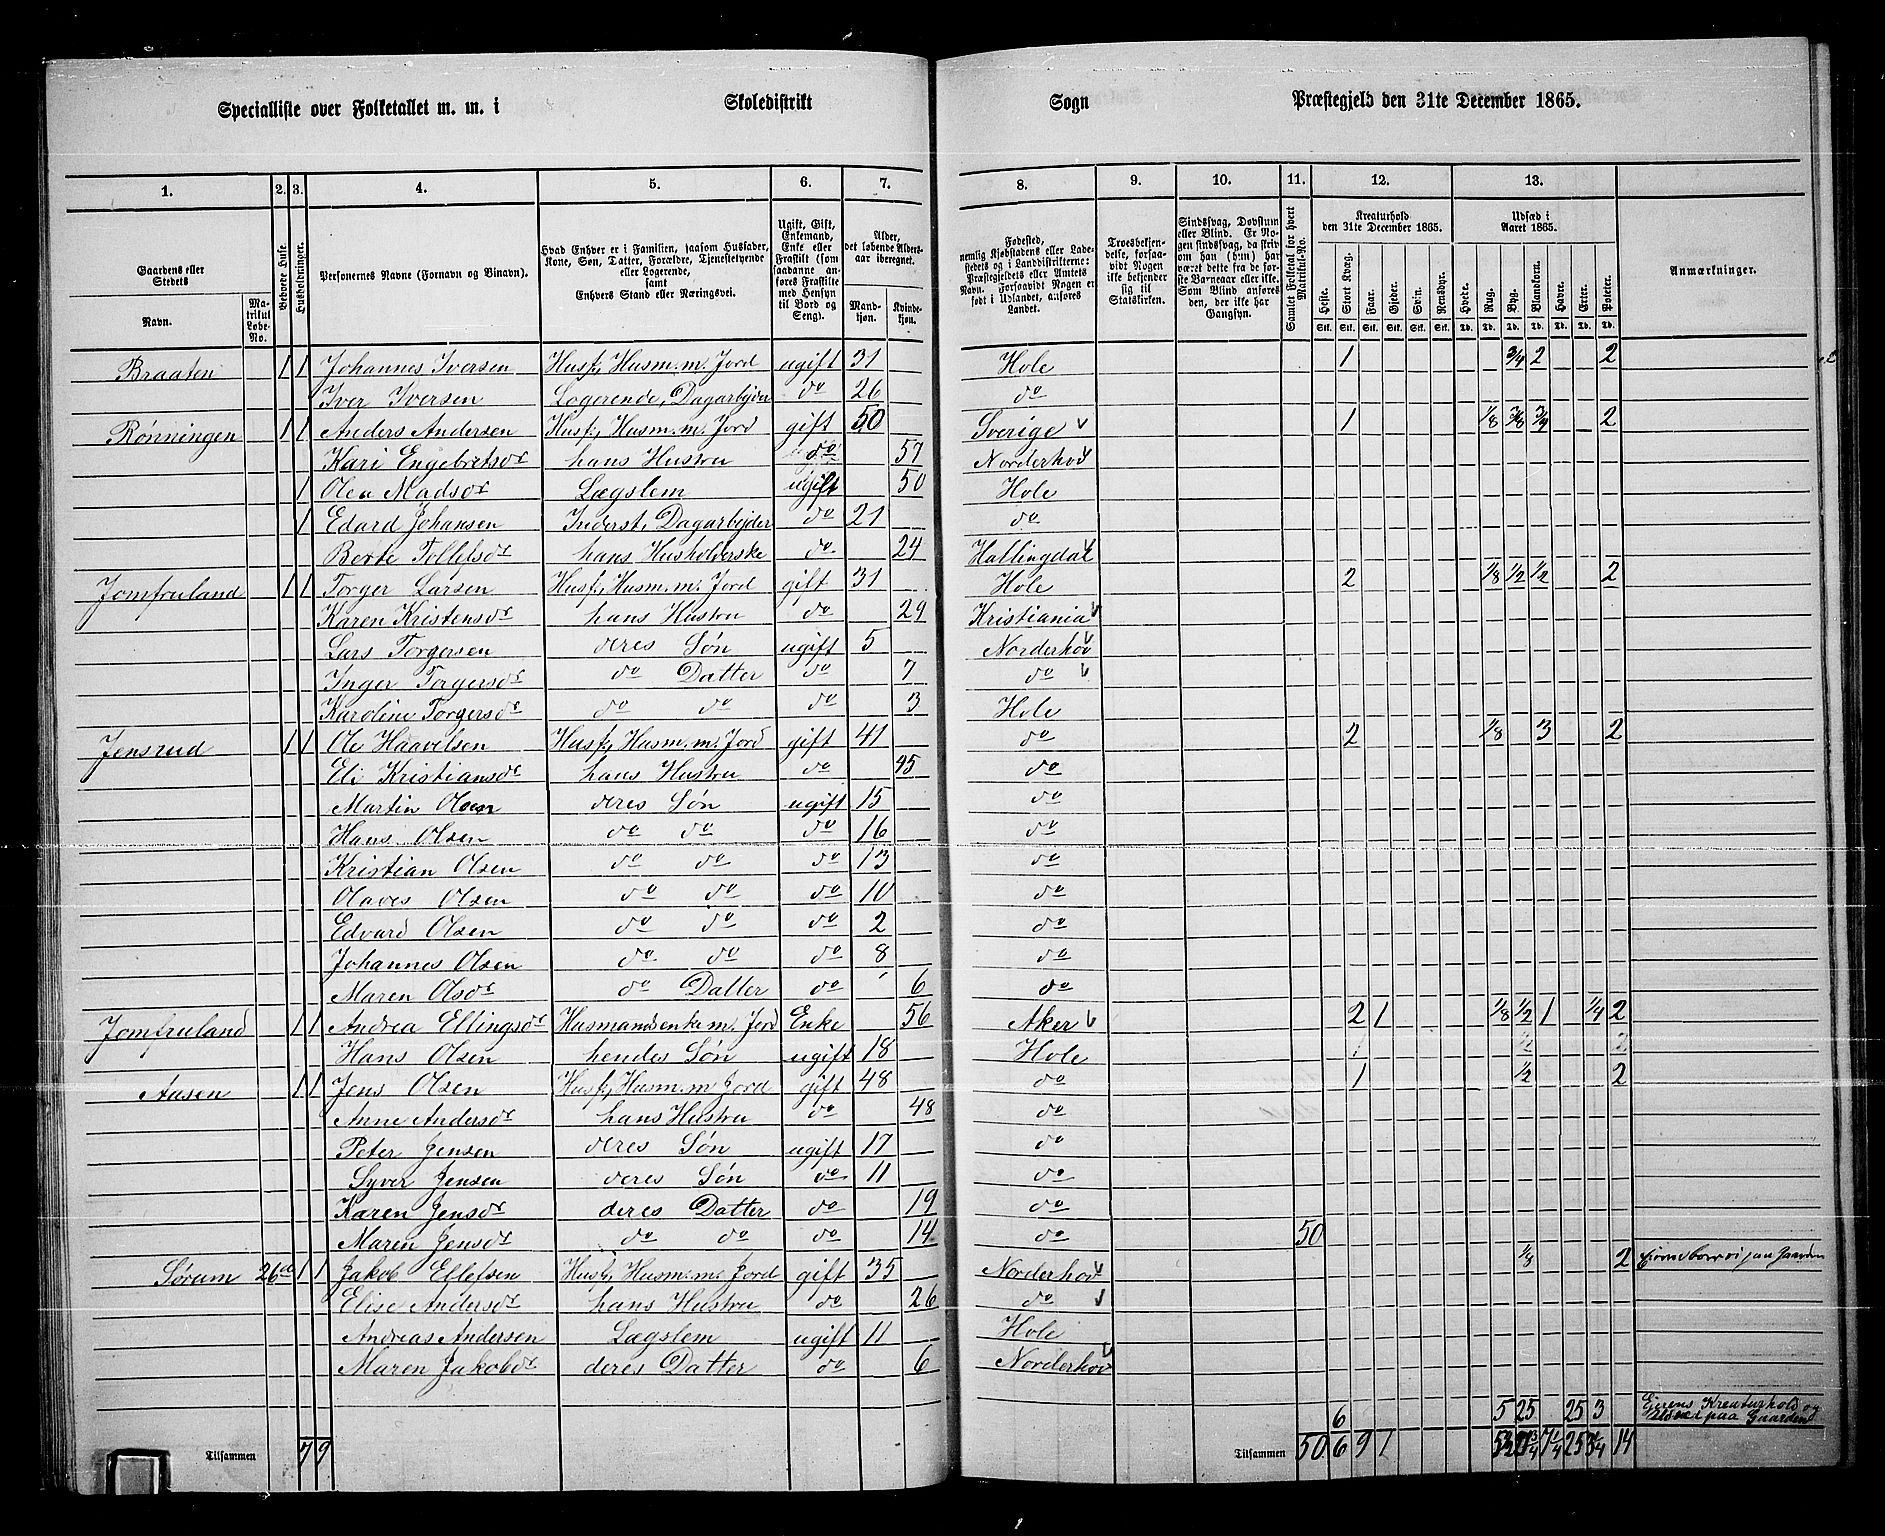 Specialliste over Folketallet m. m. i Skoledistrikt Sogn Præstegjeld den 31te December 1865.
1. 2. 3. 4. 5. 6. 7. 8. 9. 10. 11. 12. 13.
Gaardens eller Stedets
Navn.
Matrikul Løbe-No.
Beboede Huse.
Husholdninger.
Personernes Navne (Fornavn og Binavn).
Hvad Enhver er i Familien, saasom Husfader, Kone, Søn, Datter, Forældre, Tjenestetyende eller Logerende, samt Enhvers Stand eller Næringsvei.
Ugift, Gift, Enkemand, Enke eller Fraskilt (som saadanne anføres Fraskilte med Hensyn til Bord og Seng).
Alder, det løbende Aldersaar iberegnet.
Mandkjøn. Kvindekjøn.
Fødested, nemlig Kjøbstadens eller Ladestedets og i Landdistrikterne: Præstegjeldets eller Amtets Navn. Forsaavidt Nogen er født i Udlandet, anføres Landet.
Troesbekjendelse, forsaavidt Nogen ikke bekjender sig til Statskirken.
Sindssvag, Døvstum eller Blind. Er Nogen sindssvag, da skriv om han (hun) har været dette fra de første Barneaar eller ikke. Som Blind anføres den, der ikke har Gangsyn.
Samlet Folketal for hvert Matrikul-No.
Kreaturhold den 31te December 1865.
Heste. Stort Kvæg. Faar. Gjeder. Svin. Rensdyr.
Udsæd i Aaret 1865.
Hvede. Rug. Byg. Blandkorn. Havre. Erter. Poteter.
Anmærkninger.
Braaten 1 1 Johannes Iversen Husf., Husm. m. Jord ugift 31 Hole 1 3/4 2 2
Iver Iversen Logerende, Dagarbejder do 26 do
Rønningen 1 1 Anders Andersen Husf., Husm. m. Jord gift 50 Sverige 1 1/8 3/8 3/4 2
Kari Engebretsdr hans Hustru do 57 Norderhov
1 Olea Madsdr Lægslem ugift 50 Hole
1 Edard Johansen Inderst, Dagarbejder do 21 do
Berte Tollelsdr hans Husholderske do 24 Hallingdal
Jomfruland 1 1 Torger Larsen Husf., Husm. m. Jord gift 31 Hole 2 1/8 1/2 1/2 2
Karen Kristensdr hans Hustru do 29 Kristiania
Lars Torgersen deres Søn ugift 5 Norderhov
Inger Torgersdr do Datter do 7 do
Karoline Torgersdr do do do 3 Hole
Jensrud 1 1 Ole Haavelsen Husf., Husm. m. Jord gift 41 do 2 1/8 3 2
Eli Kristiansdr hans Hustru do 45 do
Martin Olsen deres Søn ugift 15 do
Hans Olsen do do do 16 do
Kristian Olsen do do do 13 do
Olaves Olsen do do do 10 do
Edvard Olsen do do do 2 do
Johannes Olsen do do do 8 do
Maren Olsdr do Datter do 6 do
Jomfruland 1 1 Andrea Ellingsdr Husmandsenke m. Jord Enke 56 Aker 2 1 1/8 1/2 1 1/4 2
Hans Olsen hendes Søn ugift 18 Hole 1 1/2 2
Aasen 1 1 Jens Olsen Husf., Husm. m Jord gift 48 do 1 1/2 2
Anne Andersdr hans Hustru do 48 do
Peter Jensen deres Søn ugift 17 do
Syver Jensen deres Søn do 11 do
Karen Jensdr deres Datter do 19 do
Maren Jensdr do do do 14 do 50
Sørum 26a 1 1 Jakob Ellefsen Husf., Husm. m. Jord gift 35 Norderhov 1/8 2
Elise Andersdr hans Hustru do 26 do
Andreas Andersen Lægslem ugift 11 Hole
Maren Jakobsdr deres Datter do 6 Norderhov
6 5 25 25 3 Eierens Kreaturhold og Udsæd paa Gaarden
Tilsammen 7 9 Tilsammen 50 6 9 1 7 1/4 25 3 1/4 14